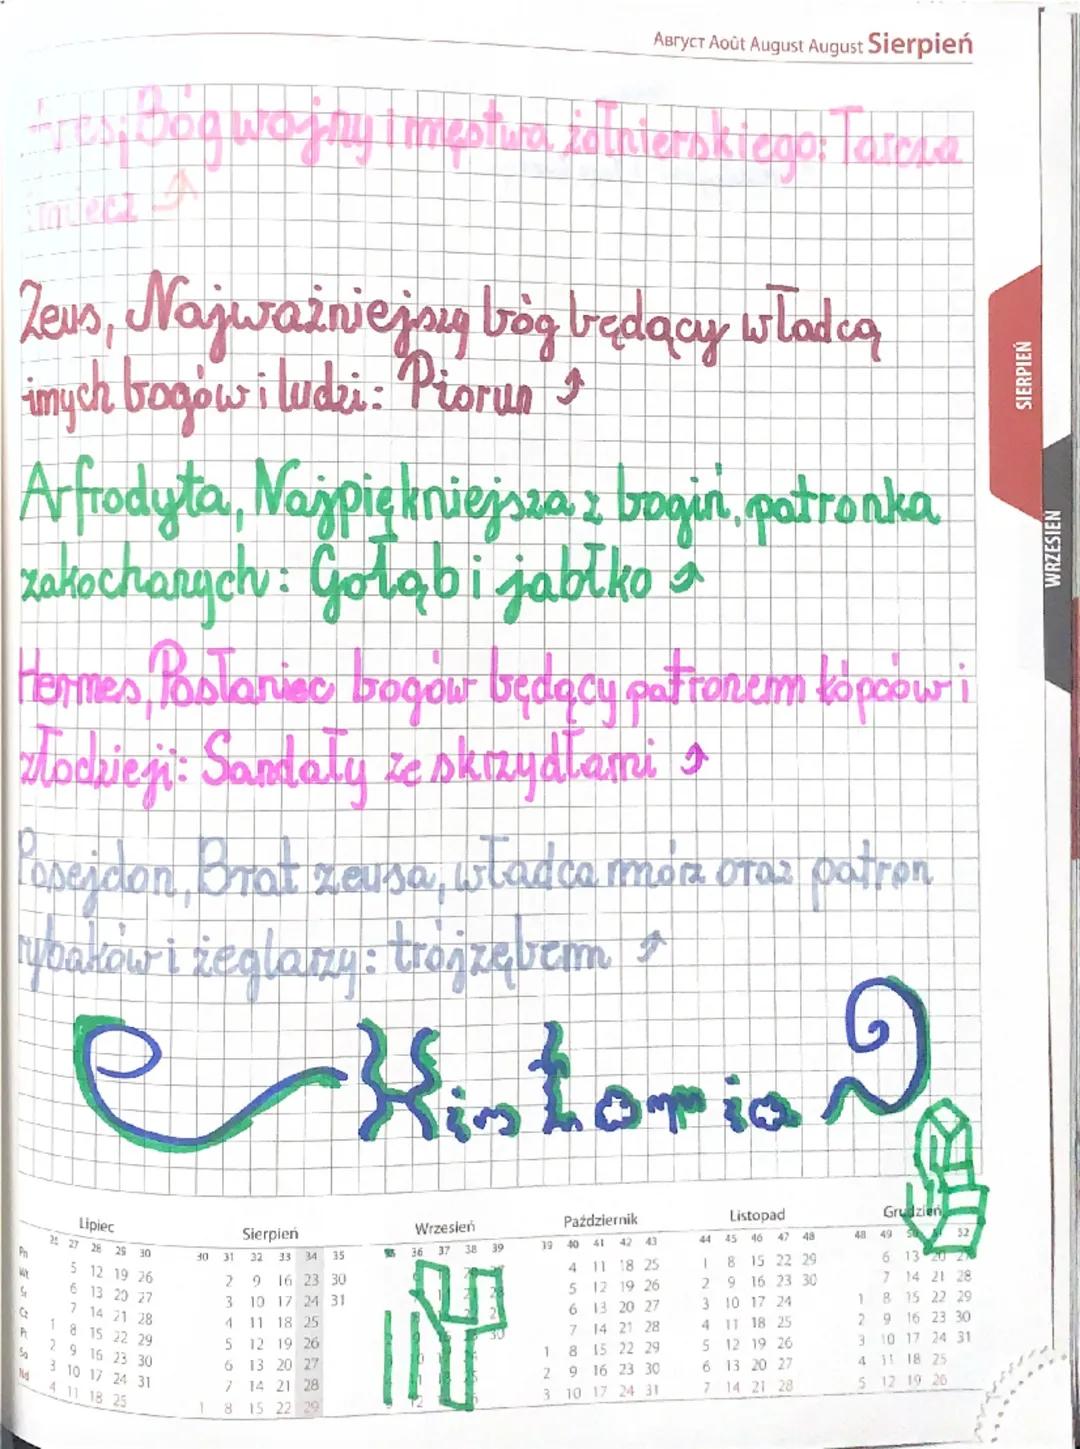 Август Août August August Sierpień
Ares, Bóg wojny i męstwa żołnierskiego: Tarcza
i miecz
Zeus, Najważniejszy bóg będący władcą
innych bogów i ludzi: Piorun
SIERPIEŃ
Arfrodyta, Najpiękniejsza z bogiń, patronka
WRZESIEŃ
zakochanych: Gołąb i jabłko
Hermes, Posłaniec bogów będący patronem kópców i
złodzieji: Sandały ze skrzydłami
Posejdon, Brat zeusa, władca mórz oraz patron
rybaków i żeglarzy: trójzębem
Historia
Lipiec Sierpień Wrzesień Październik Listopad Grudzień
26 27 28 29 30 30 31 32 33 34 35 36 37 38 39 39 40 41 42 43 44 45 46 47 48 48 49 52
Pn 5 12 19 26 2 9 16 23 30 4 11 18 25 1 8 15 22 29 6 13 20 27
Wt 6 13 20 27 3 10 17 24 31 5 12 19 26 2 9 16 23 30 7 14 21 28
Śr 7 14 21 28 4 11 18 25 6 13 20 27 3 10 17 24 1 8 15 22 29
Cz 1 8 15 22 29 5 12 19 26 7 14 21 28 4 11 18 25 2 9 16 23 30
Pt 2 9 16 23 30 6 13 20 27 1 8 15 22 29 5 12 19 26 3 10 17 24 31
So 3 10 17 24 31 7 14 21 28 2 9 16 23 30 6 13 20 27 4 11 18 25
Nd 4 11 18 25 1 8 15 22 29 3 10 17 24 31 7 14 21 28 5 12 19 26